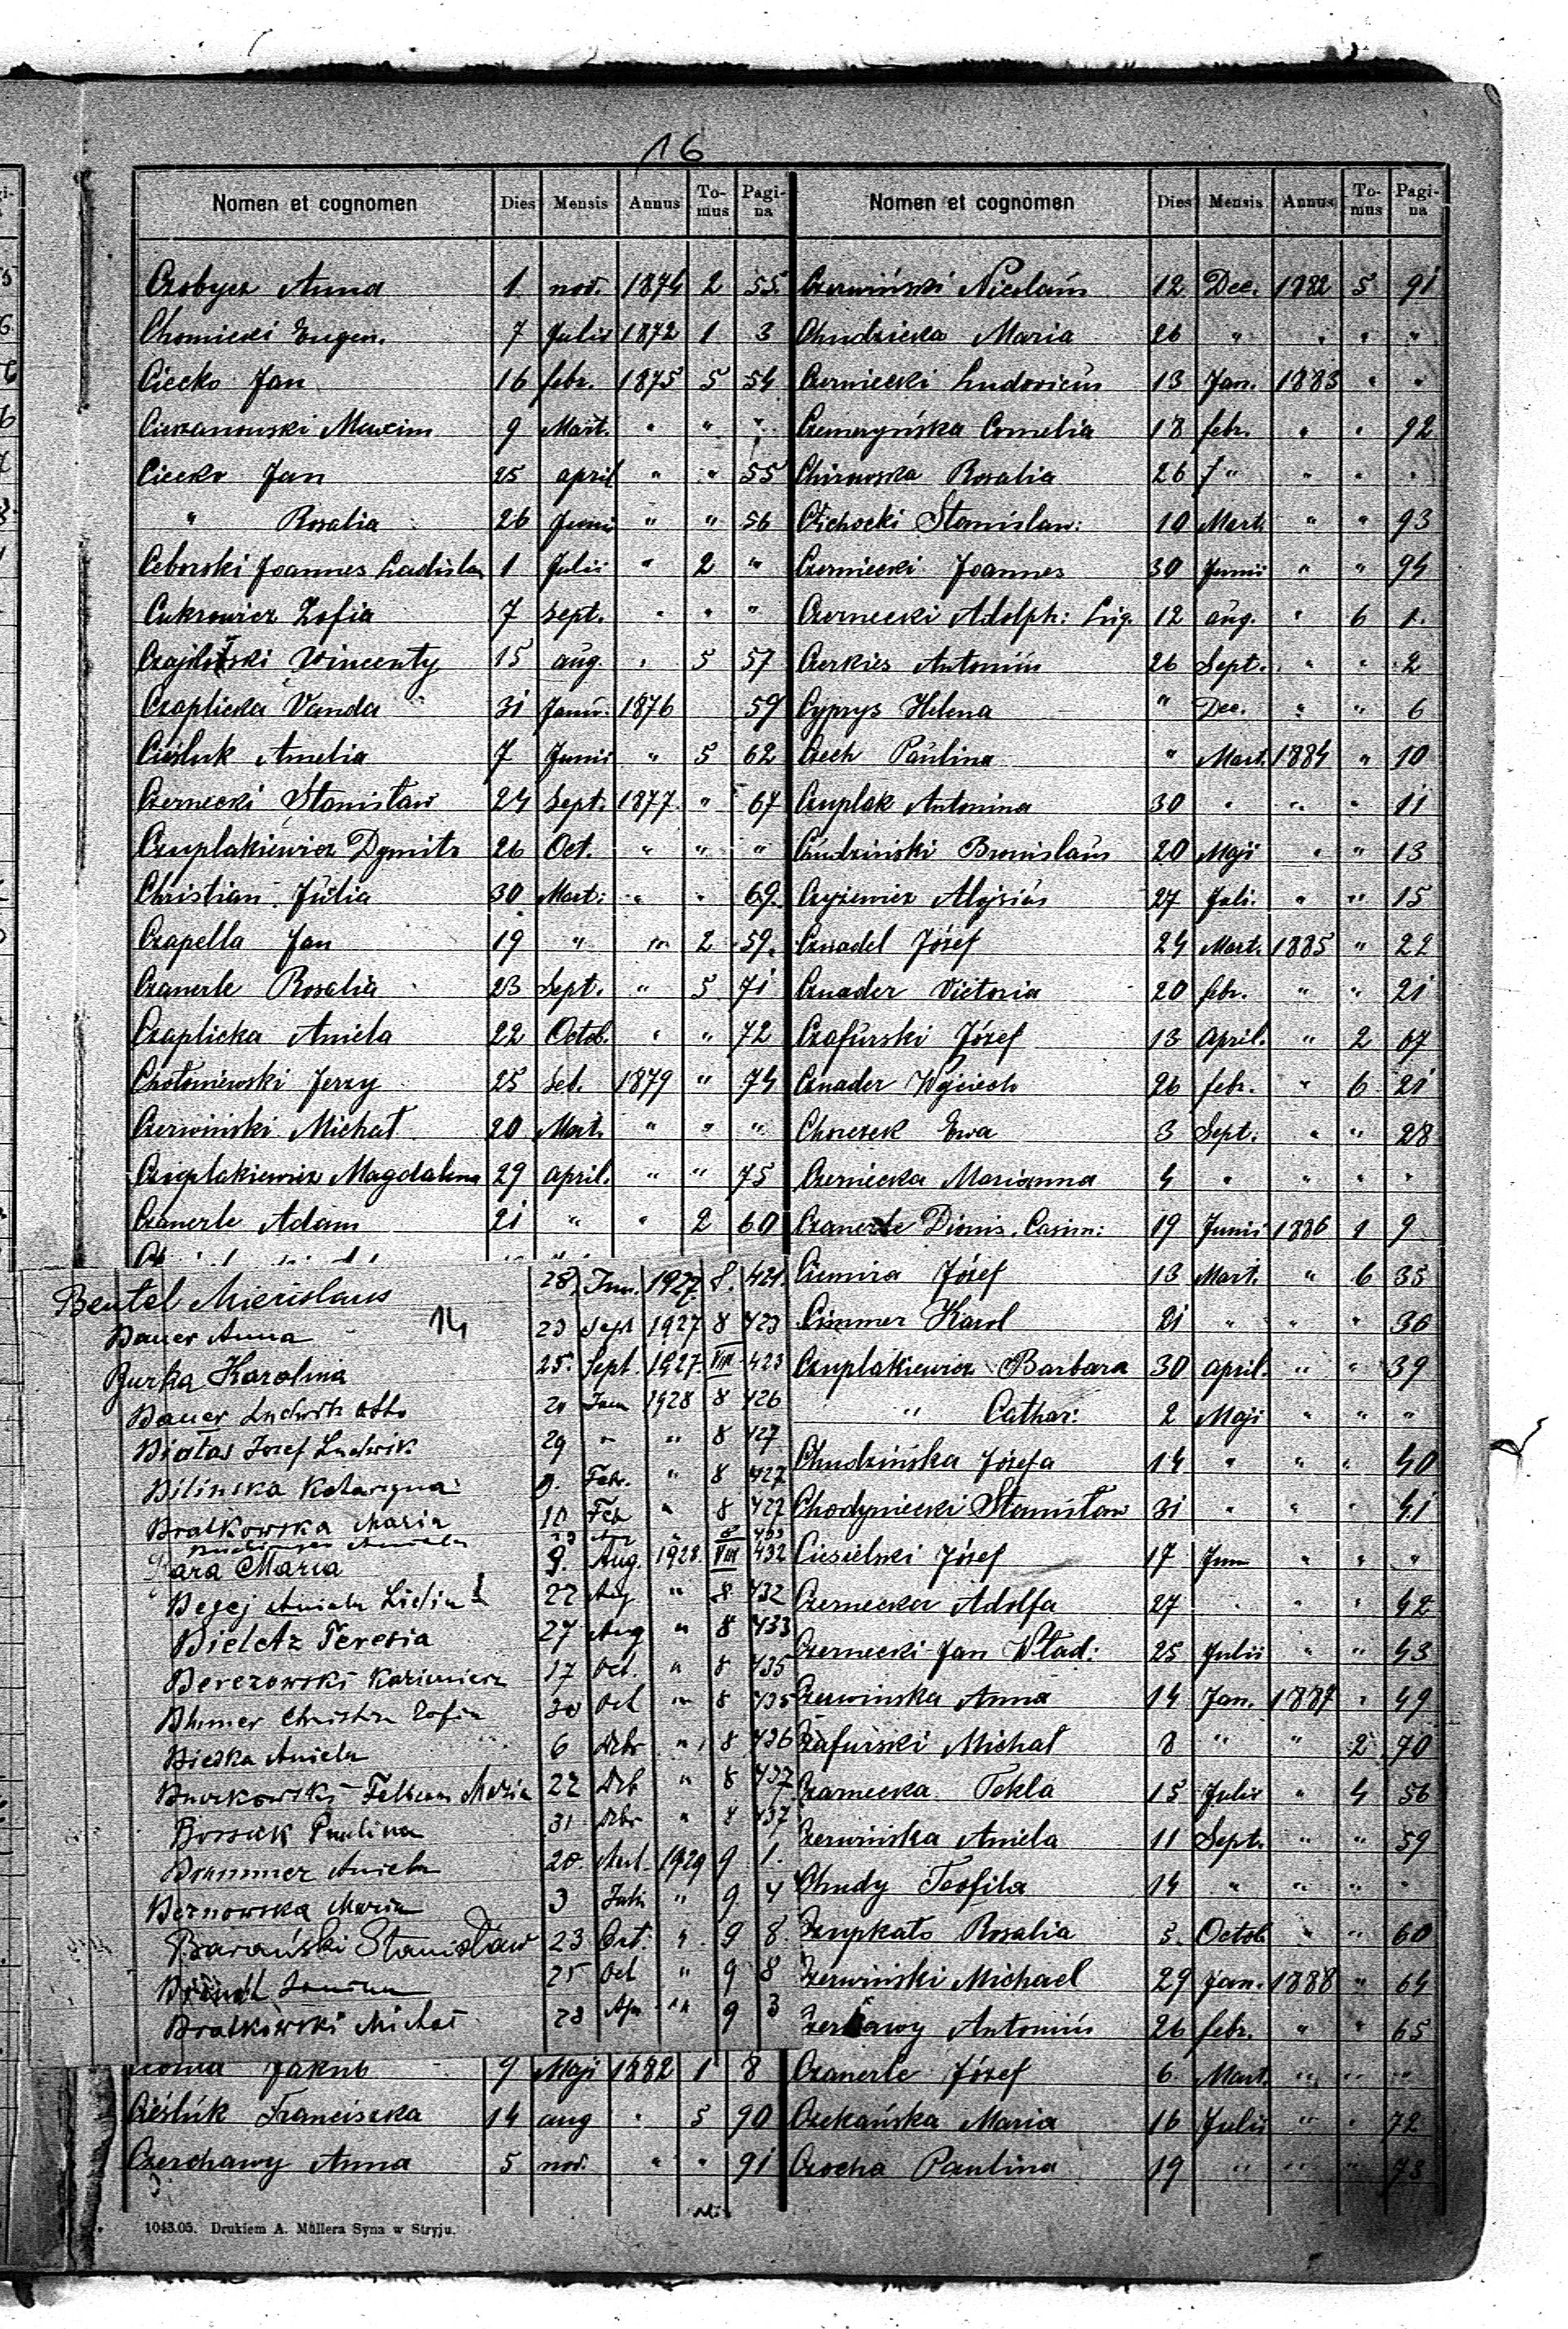 16
Nomen et cognomen Dies Mensis Annus To-mus Pagi-na
Czobycz Anna 1 nov. 1874 2 55.
Chomicki Eugen. 7 Julii 1872 1 3
Ciecko Jan 16 febr. 1875 5 54
Ciekanowski Maxim 9 Mart. " " "
Ciecko Jan 25 april " " 55
" Rosalia 26 Junii " " 56
Ceborski Joannes Ladislau 1 Julii " 2 "
Cukrowicz Zofia 7 Sept. " " "
Vincenty 15 aug. " 5 57
Czaplicka Vanda 31 Janu. 1876 59
Cieśluk Amelia 7 Junii " 5 62
Czernecki Stanisław 24 Sept. 1877 " 67
Czuplakiewicz Dymitr 26 Oct. " " "
Christian Julia 30 Mart: " " 69.
Czapella Jan 19 " " 2 59.
Czanerle Rosalia 23 Sept. " 5 71
Czaplicka Aniela 22 Octob. " " 72
Chołoniewski Jerzy 25 1879 " 74
Czerwiński Michał 20 Mart. " " "
Czuplakiewicz Magdalena 29 april. " " 75
Czanerle Adam 21 " " 2 60
Beutel Mierislaus 28. Jun. 1927. 8. 421.
14
Bauer Anna 23 Sept 1927 8 423
Burka Karolina 25. Sept. 1927. VIII 423
Bauer Ludwik Otto 20 Jan 1928 8 426
Białas Józef Ludwik 29 " " 8 427
Bilinska Katarzyna 9. Febr. " 8 427
Bratkowska Maria 10 Feb " 8 427
Bara Maria 9. Aug. 1928. VIII 432
Begej Aniela Lidia 22 Aug " 8 432
Bieletz Teresia 27 Aug " 8 433
Berezowski Kazimierz 17 Oct. " 8 435
Blumer Christina Zofia 30 Oct " 8 435
Bieska Aniela 6 Dbr " 8 436
Burkowski Felician Maria 22 Dcb " 8 437
Bossak Paulina 31 Dbr " 8 437
Brammer Aniela 20. 1929 9 1.
Bernowska Maria 3 Juli " 9 4
Barański Stanisław 23 Oct. " 9 8
25 Oct " 9 8
Bratkowski Michał 28 Apr " 9 3
Jakub 9 Maji 1882 1 8
Cieśluk Franciszka 14 aug " 5 90
Czerchawy Anna 5 nov. " " 91
Nomen et cognomen Dies Mensis Annus To-mus Pagi-na
Czerwiński Nicolaus 12 Dec. 1882 5 91
Chudzicka Maria 26 " " " "
Czerniecki Ludovicus 13 Jan. 1883 " "
Czemeryńska Cornelia 18 febr. " " 92
Chirowska Rosalia 26 f " " " "
Cichocki Stanislaw: 10 Mart. " " 93
Czerniecki Joannes 30 Junii " " 94
Czernecki Adolph: Lug. 12 aug. " 6 1.
Czerkies Antonius 26 Sept. " " 2
Cyprys Helena " Dec. " " 6
Czech Paulina " Mart. 1884 " 10
Czuplak Antonina 30 " " " 11
Chudziński Bronislaus 20 Maji " " 13
Czyżewicz Aloysius 27 Juli. " " 15
Cznadel Józef 24 Mart. 1885 " 22
Cznader Victoria 20 febr. " " 21
Czafurski Józef 13 April. " 2 67
Cznader Wojciech 26 febr. " 6 21
Chorczek Ewa 3 Sept. " " 28
Czerniecka Marianna 4 " " " "
Czanerle Dionis. Casim: 19 Junii 1886 1 9
Ciemira Józef 13 Mart. " 6 35
Cimmer Karol 21 " " " 36
Czuplakiewicz Barbara 30 april. " " 39
" Cathar: 2 Maji " " "
Chudzińska Józefa 14 " " " 40
Chodyniecki Stanisław 31 " " " 41
Ciesielski Józef 17 Jun " " "
Czernecka Adolfa 27 " " " 42
Czernecki Jan Wład: 25 Julii " " 43
Czerwinska Anna 14 Jan. 1887 " 49
Czafurski Michał 8 " " 2 70
Czarnecka Tekla 15 Julii " 4 56
Czerwińska Aniela 11 Sept. " " 59
Chudy Teofila 14 " " " "
Czupkato Rosalia 5. Octob. " " 60
Czerwiński Michael 29 Jan. 1888 " 64
Antonius 26 febr. " " 65
Czanerle Józef 6. Mart. " " "
Czekańska Maria 16 Julii " " 72
Czocha Paulina 19 " " " 73
1043.05. Drukiem A. Müllera Syna w Stryju.